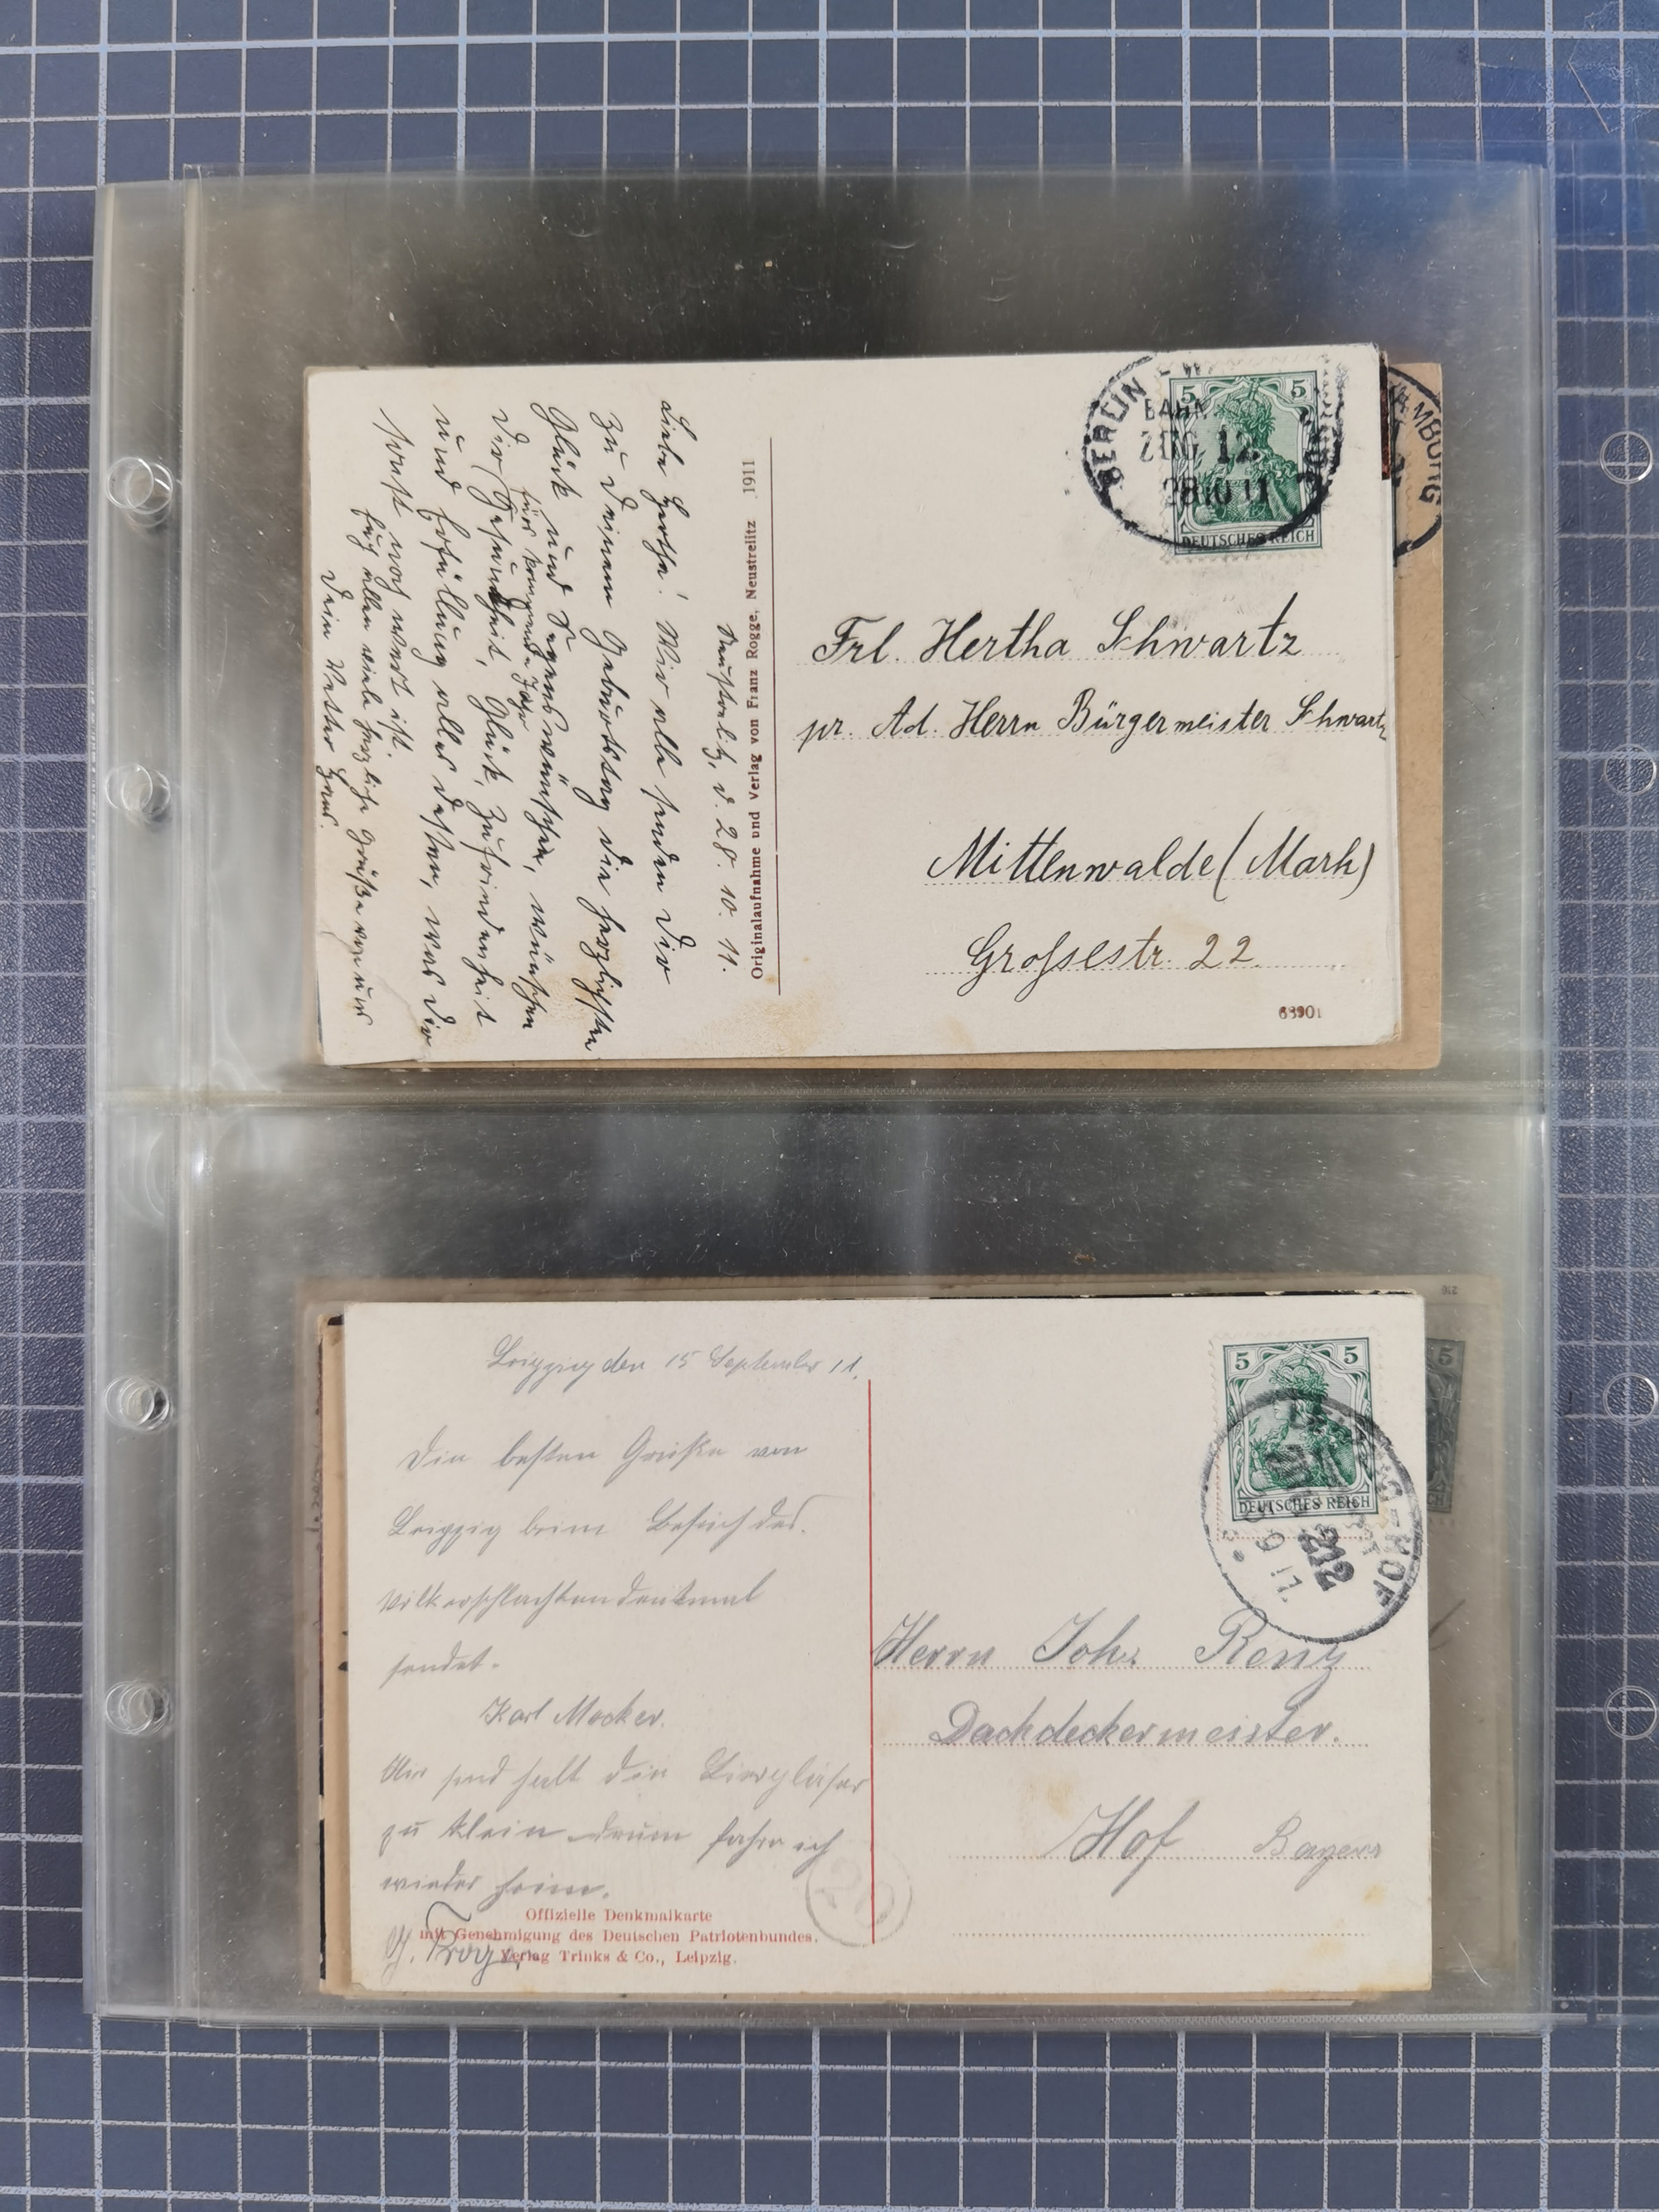 BERLIN
BAHN
ZUG 12
28 10 11
5 5
DEUTSCHES REICH
HAMBURG
Neustrelitz, d. 28. 10. 11.
Liebe Hertha! Wir alle senden Dir
zu Deinem Geburtstag die herzlichsten
Glück und Segenswünsche, wünschen
für kommende Jahr
Dir Gesundheit, Glück, Zufriedenheit
und Erfüllung alles dessen, was Dir
sonst noch wert ist.
Euch allen viele herzliche Grüße von uns
Dein Vetter Hans.
Originalaufnahme und Verlag von Franz Rogge, Neustrelitz 1911
Frl. Hertha Schwartz
pr. Ad. Herrn Bürgermeister Schwartz
Mittenwalde (Mark)
Grossestr. 22
63901
216
Leipzig den 15 September 11.
Die besten Grüße von
Leipzig beim Besuch des.
Völkerschlachtendenkmal
sendet.
Karl Mocker.
Mir sind halt die Biergläser
zu klein drum fahre ich
wieder heim.
Offizielle Denkmalkarte
mit Genehmigung des Deutschen Patriotenbundes.
Verlag Trinks & Co., Leipzig.
5 5
DEUTSCHES REICH
G-HOF
212
9 11
Herrn Joh. Renz
Dachdeckermeister.
Hof Bayern
20
5